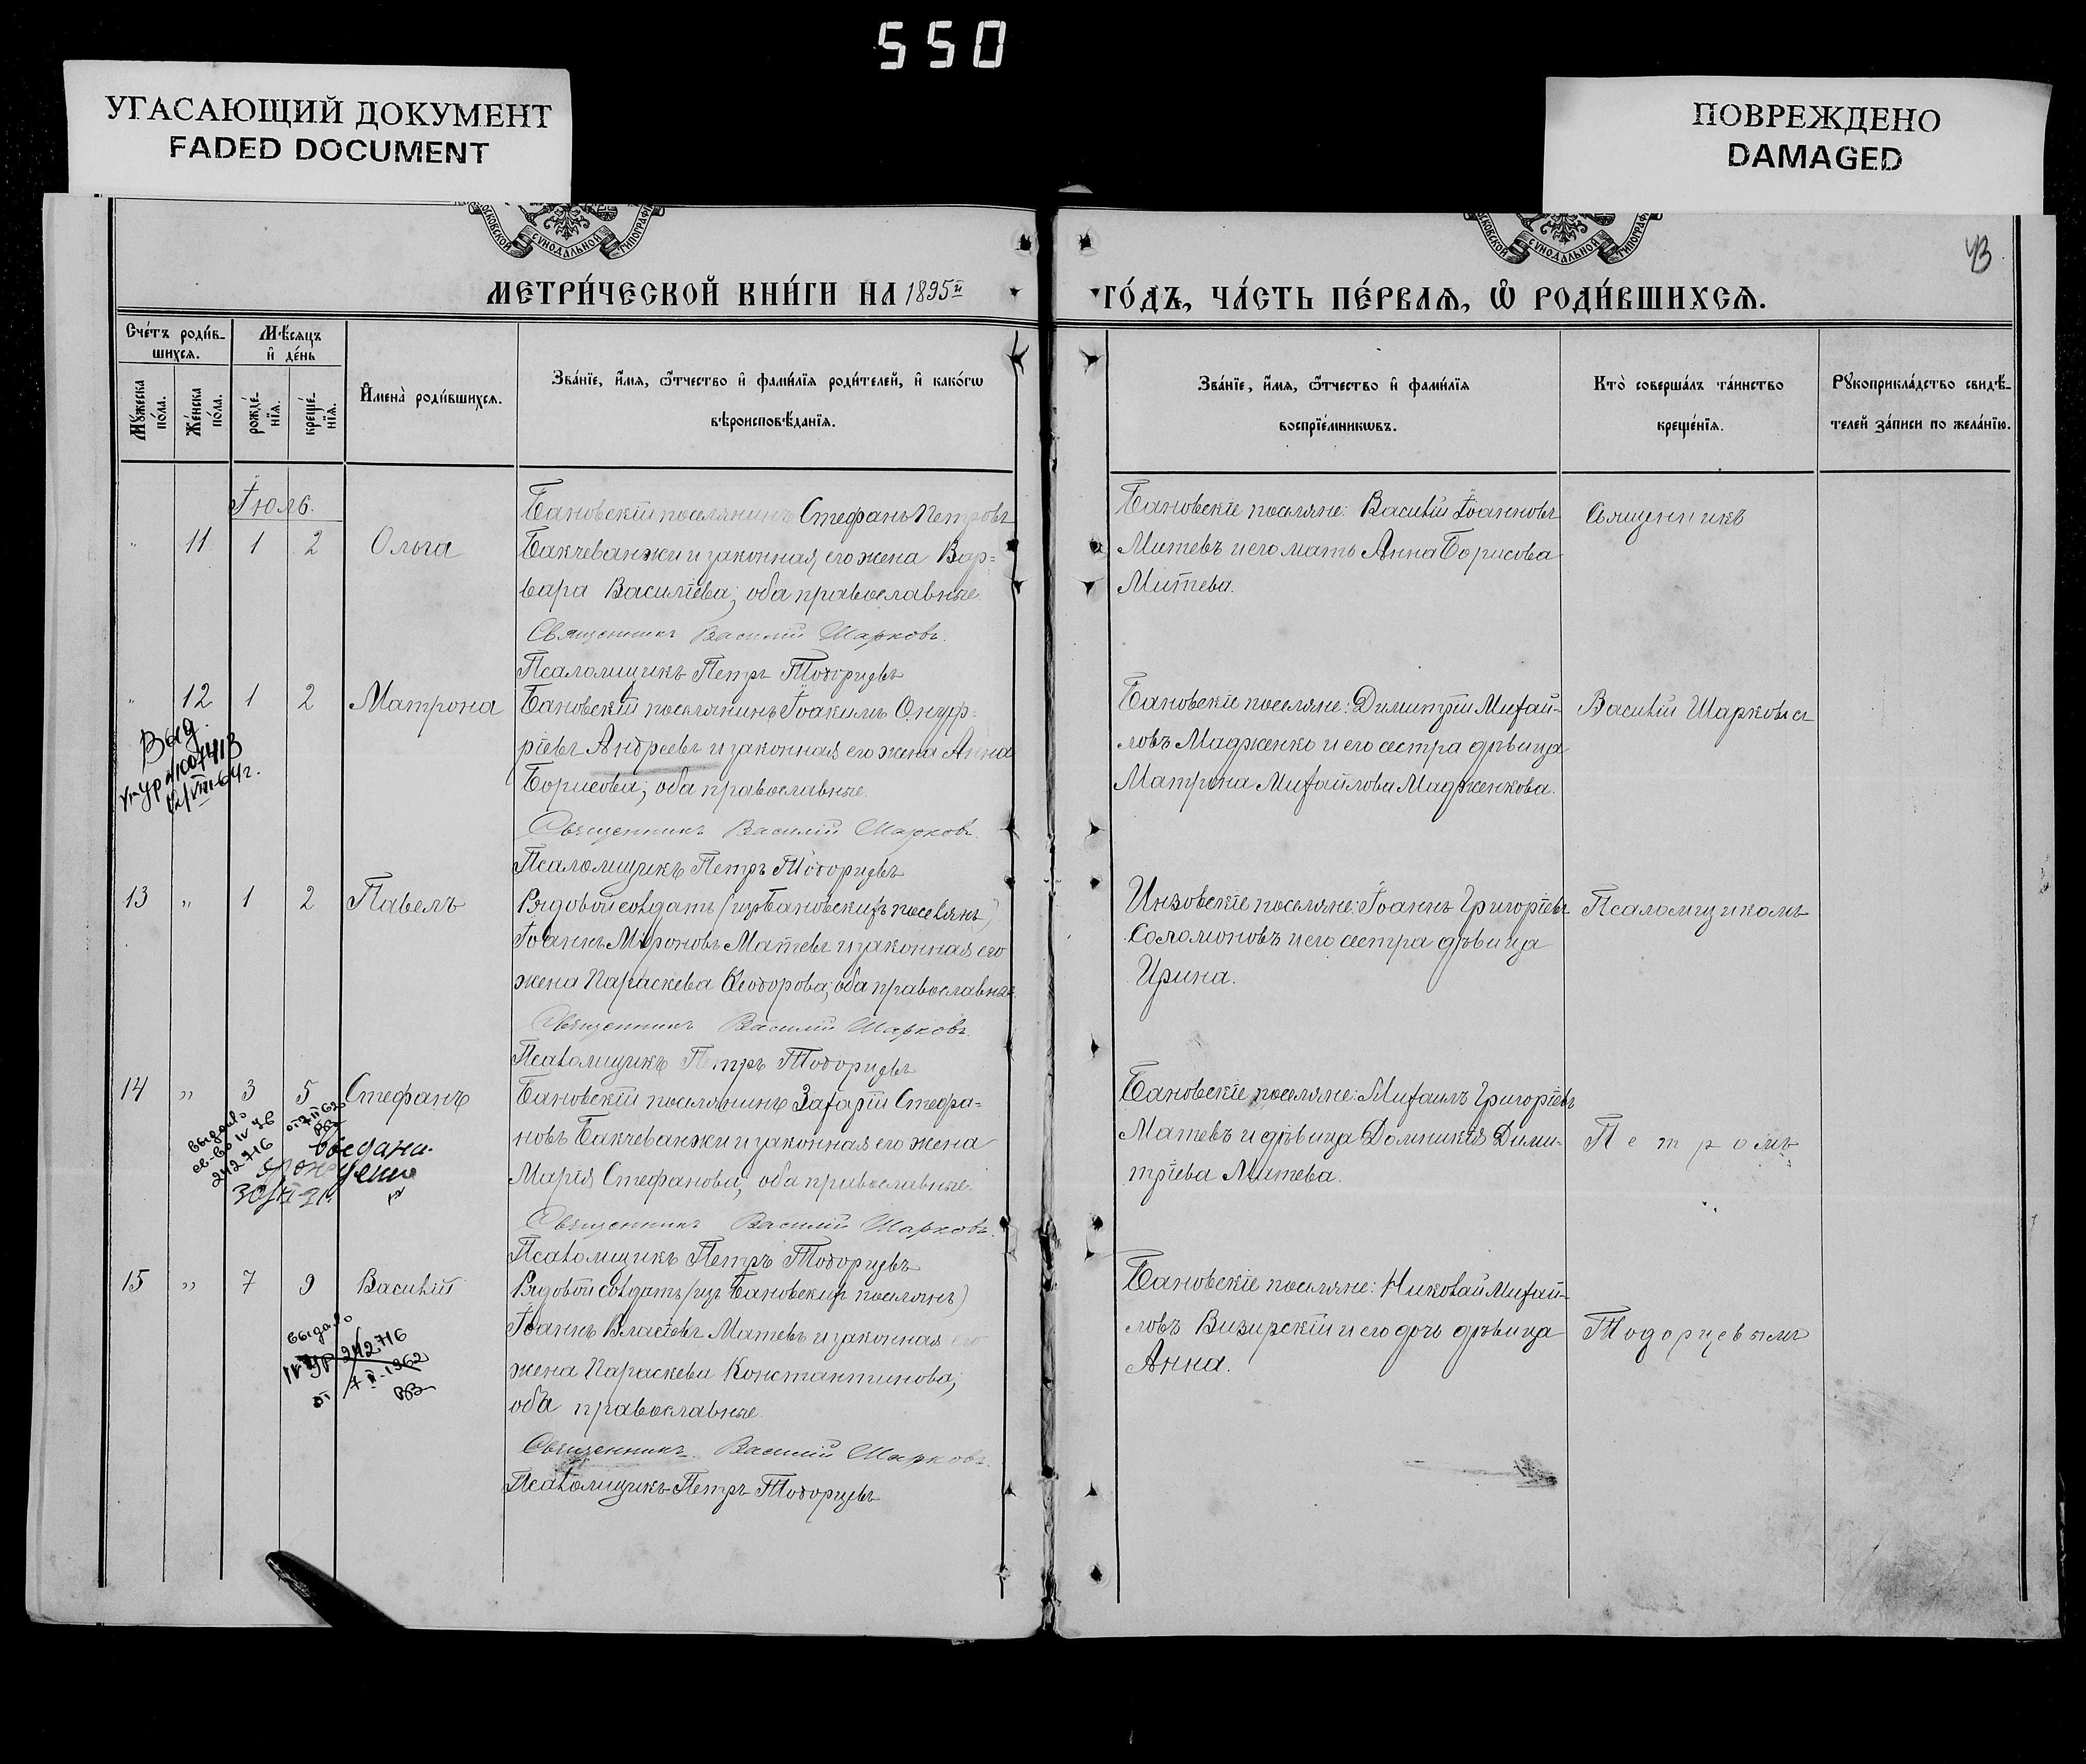 550
УГАСАЮЩИЙ ДОКУМЕНТ
FADED DOCUMENT
ПОВРЕЖДЕНО
DAMAGED
МОСКОВСКОЙ СѴНОДАЛЬНОЙ ТИПОГРАФІ
МОСКОВСКОЙ СѴНОДАЛЬНОЙ ТИПОГРАФІ
43
МЕТРИ́ЧЕСКОЙ КНИ́ГИ НА 1895й ГО́ДЪ, ЧА́СТЬ ПЕ́РВАЯ, Ѡ҆ РОДИ́ВШИХСЯ.
Сче́тъ роди́в-
шихся.
Мѣ́сяцъ
и҆ де́нь
Мꙋ́жеска по́ла.
Же́нска по́ла.
рожде́-
нїя.
креще́-
нїя.
И҆мена̀ роди́вшихся.
Зва́нїе, и҆́мя, ѻ҆́тчество и҆ фами́лїя роди́телей, и҆ како́гѡ
вѣроисповѣ́данїя.
Зва́нїе, и҆́мя, ѻ҆́тчество и҆ фами́лїя
воспрїе́мникѡвъ.
Кто̀ соверша́лъ та́инство
креще́нїя.
Рꙋкоприкла́дство свидѣ́-
телей за́писи по жела́нїю.
Іюль.
" 11 1 2 Ольга
Бановскій поселянинъ Стефанъ Петровъ
Бакчеванжи и законная его жена Вар=
вара Василіева; оба православные.
Священникъ Василій Шарковъ.
Псаломщикъ Петръ Тодорцевъ
Бановскіе поселяне: Василій Іоанновъ
Митевъ и его мать Анна Борисова
Митева.
Священникъ
" 12 1 2 Матрона
Бановскій поселянинъ Іоакимъ Онуф=
ріевъ Андреевъ и законная его жена Анна
Борисова; оба православные.
Священникъ Василій Шарковъ.
Псаломщикъ Петръ Тодорцевъ
Бановскіе поселяне: Димитрій Михай-
ловъ Мадженко и его сестра дѣвица
Матрона Михайлова Мадженкова.
Василій Шарковъ съ
Выд.
13 " 1 2 Павелъ
Рядовой солдатъ (изъ Бановскихъ поселянъ)
Іоаннъ Мироновъ Матевъ и законная его
жена Параскева Ѳеодорова; оба православные.
Священникъ Василій Шарковъ.
Псаломщикъ Петръ Тодорцевъ
Инзовскіе поселяне: Іоаннъ Григоріевъ
Соломоновъ и его сестра дѣвица
Ирина.
Псаломщикомъ
14 " 3 5 Стефанъ
Бановскій поселянинъ Захарій Стефа=
новъ Бакчеванжи и законная его жена
Марія Стефанова; оба православные.
Священникъ Василій Шарковъ.
Псаломщикъ Петръ Тодорцевъ
Бановскіе поселяне: Михаилъ Григоріевъ
Матевъ и дѣвица Домникія Дими-
тріева Митева.
Петромъ
выдано
242716
15 " 7 9 Василій
Рядовой солдатъ (изъ Бановскихъ поселянъ)
Іоаннъ Власіевъ Матевъ и законная его
жена Параскева Константинова;
оба православные.
Священникъ Василій Шарковъ.
Псаломщикъ Петръ Тодорцевъ
Бановскіе поселяне: Николай Михай-
ловъ Визирскій и его дочь дѣвица
Анна.
Тодорцевымъ
выдано
242716